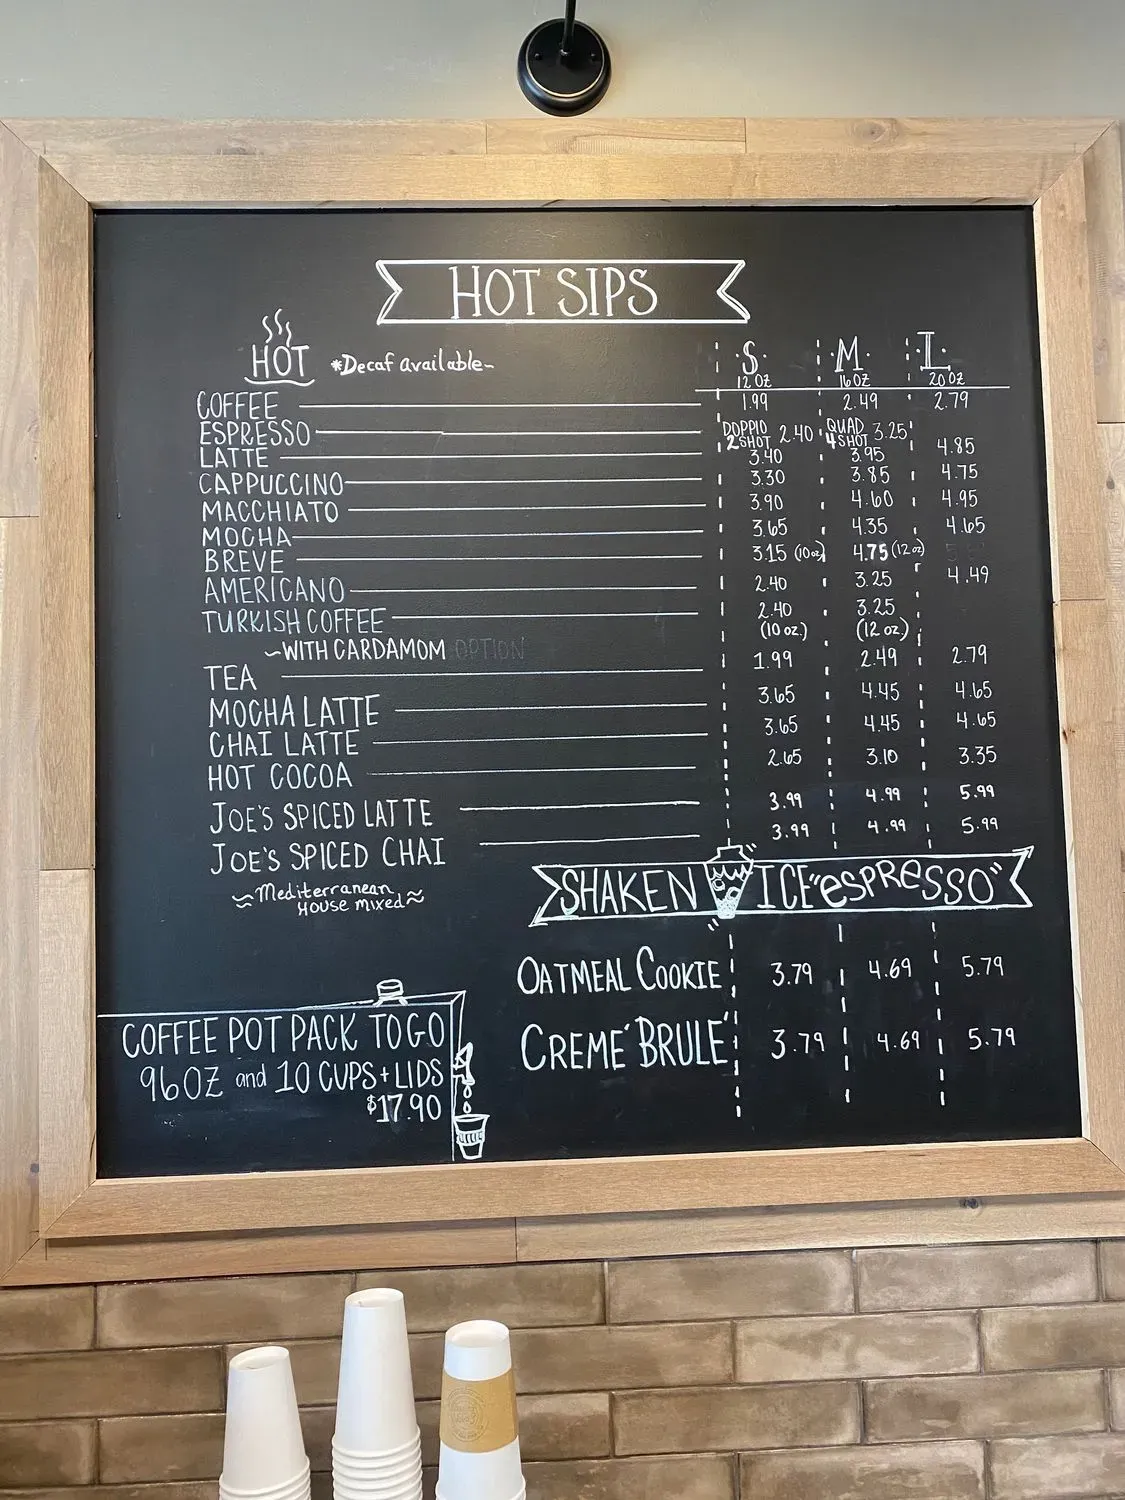 HOT SIPS
HOT *Decaf available~ S M L
12 OZ 16 OZ 20 OZ
COFFEE 1.99 2.49 2.79
ESPRESSO DOPPIO 2 SHOT 2.40 QUAD 4 SHOT 3.25
LATTE 3.40 3.95 4.85
CAPPUCCINO 3.30 3.85 4.75
MACCHIATO 3.90 4.60 4.95
MOCHA 3.65 4.35 4.65
BREVE 3.15 (10oz) 4.75 (12oz)
AMERICANO 2.40 3.25 4.49
TURKISH COFFEE 2.40 (10 oz.) 3.25 (12 oz)
~WITH CARDAMOM OPTION
TEA 1.99 2.49 2.79
MOCHA LATTE 3.65 4.45 4.65
CHAI LATTE 3.65 4.45 4.65
HOT COCOA 2.65 3.10 3.35
JOE'S SPICED LATTE 3.99 4.99 5.99
JOE'S SPICED CHAI 3.99 4.99 5.99
~Mediterranean
House mixed~
SHAKEN ICE "ESPRESSO"
OATMEAL COOKIE 3.79 4.69 5.79
CREME' BRULE' 3.79 4.69 5.79
COFFEE POT PACK TO GO
96OZ and 10 CUPS + LIDS
$17.90